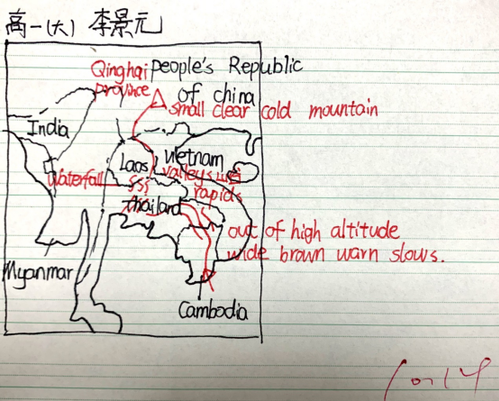 高一(六) 李景元
Qinghai People's Republic
province of china
small clear cold mountain
India
Laos Vietnam
Waterfall valleys
rapids
Thailand
out of high altitude
wide brown warn slows.
Myanmar
Cambodia